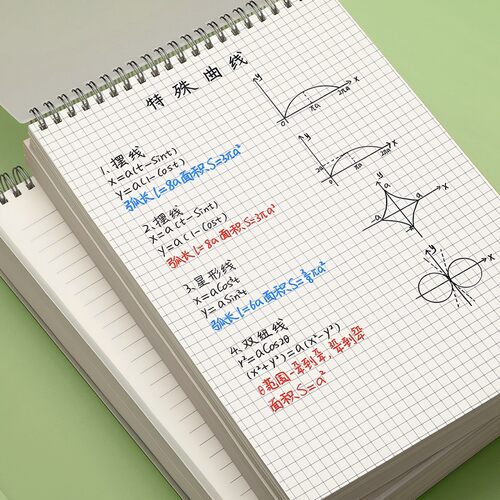 特殊曲线
1.摆线
x=a(t-Sint)
y=a(1-Cost)
弧长l=8a面积.S=3πa²
2.摆线
x=a(t-Sint)
y=a(1-Cost)
弧长l=8a面积.S=3πa²
3.星形线
x=aCos³t
y=aSin³t
弧长l=6a面积.S=⅜πa²
4.双纽线
r²=aCos2θ
(x²+y²)=a(x²-y²)
面积.S=a²
y
x
0
πa
2πa
y
x
2a
0
πa
2πa
y
x
a
a
a
y
x